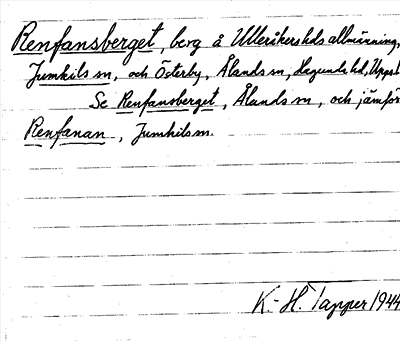 Renfansberget, berg å Ulleråkershds allmänning,
Jumkils sn, och Österby, Ålands sn, Hagunda hd, Uppsl.
Se Renfansberget, Ålands sn, och jämför
Renfanan, Jumkils sn.
K.-H. Tapper 1944